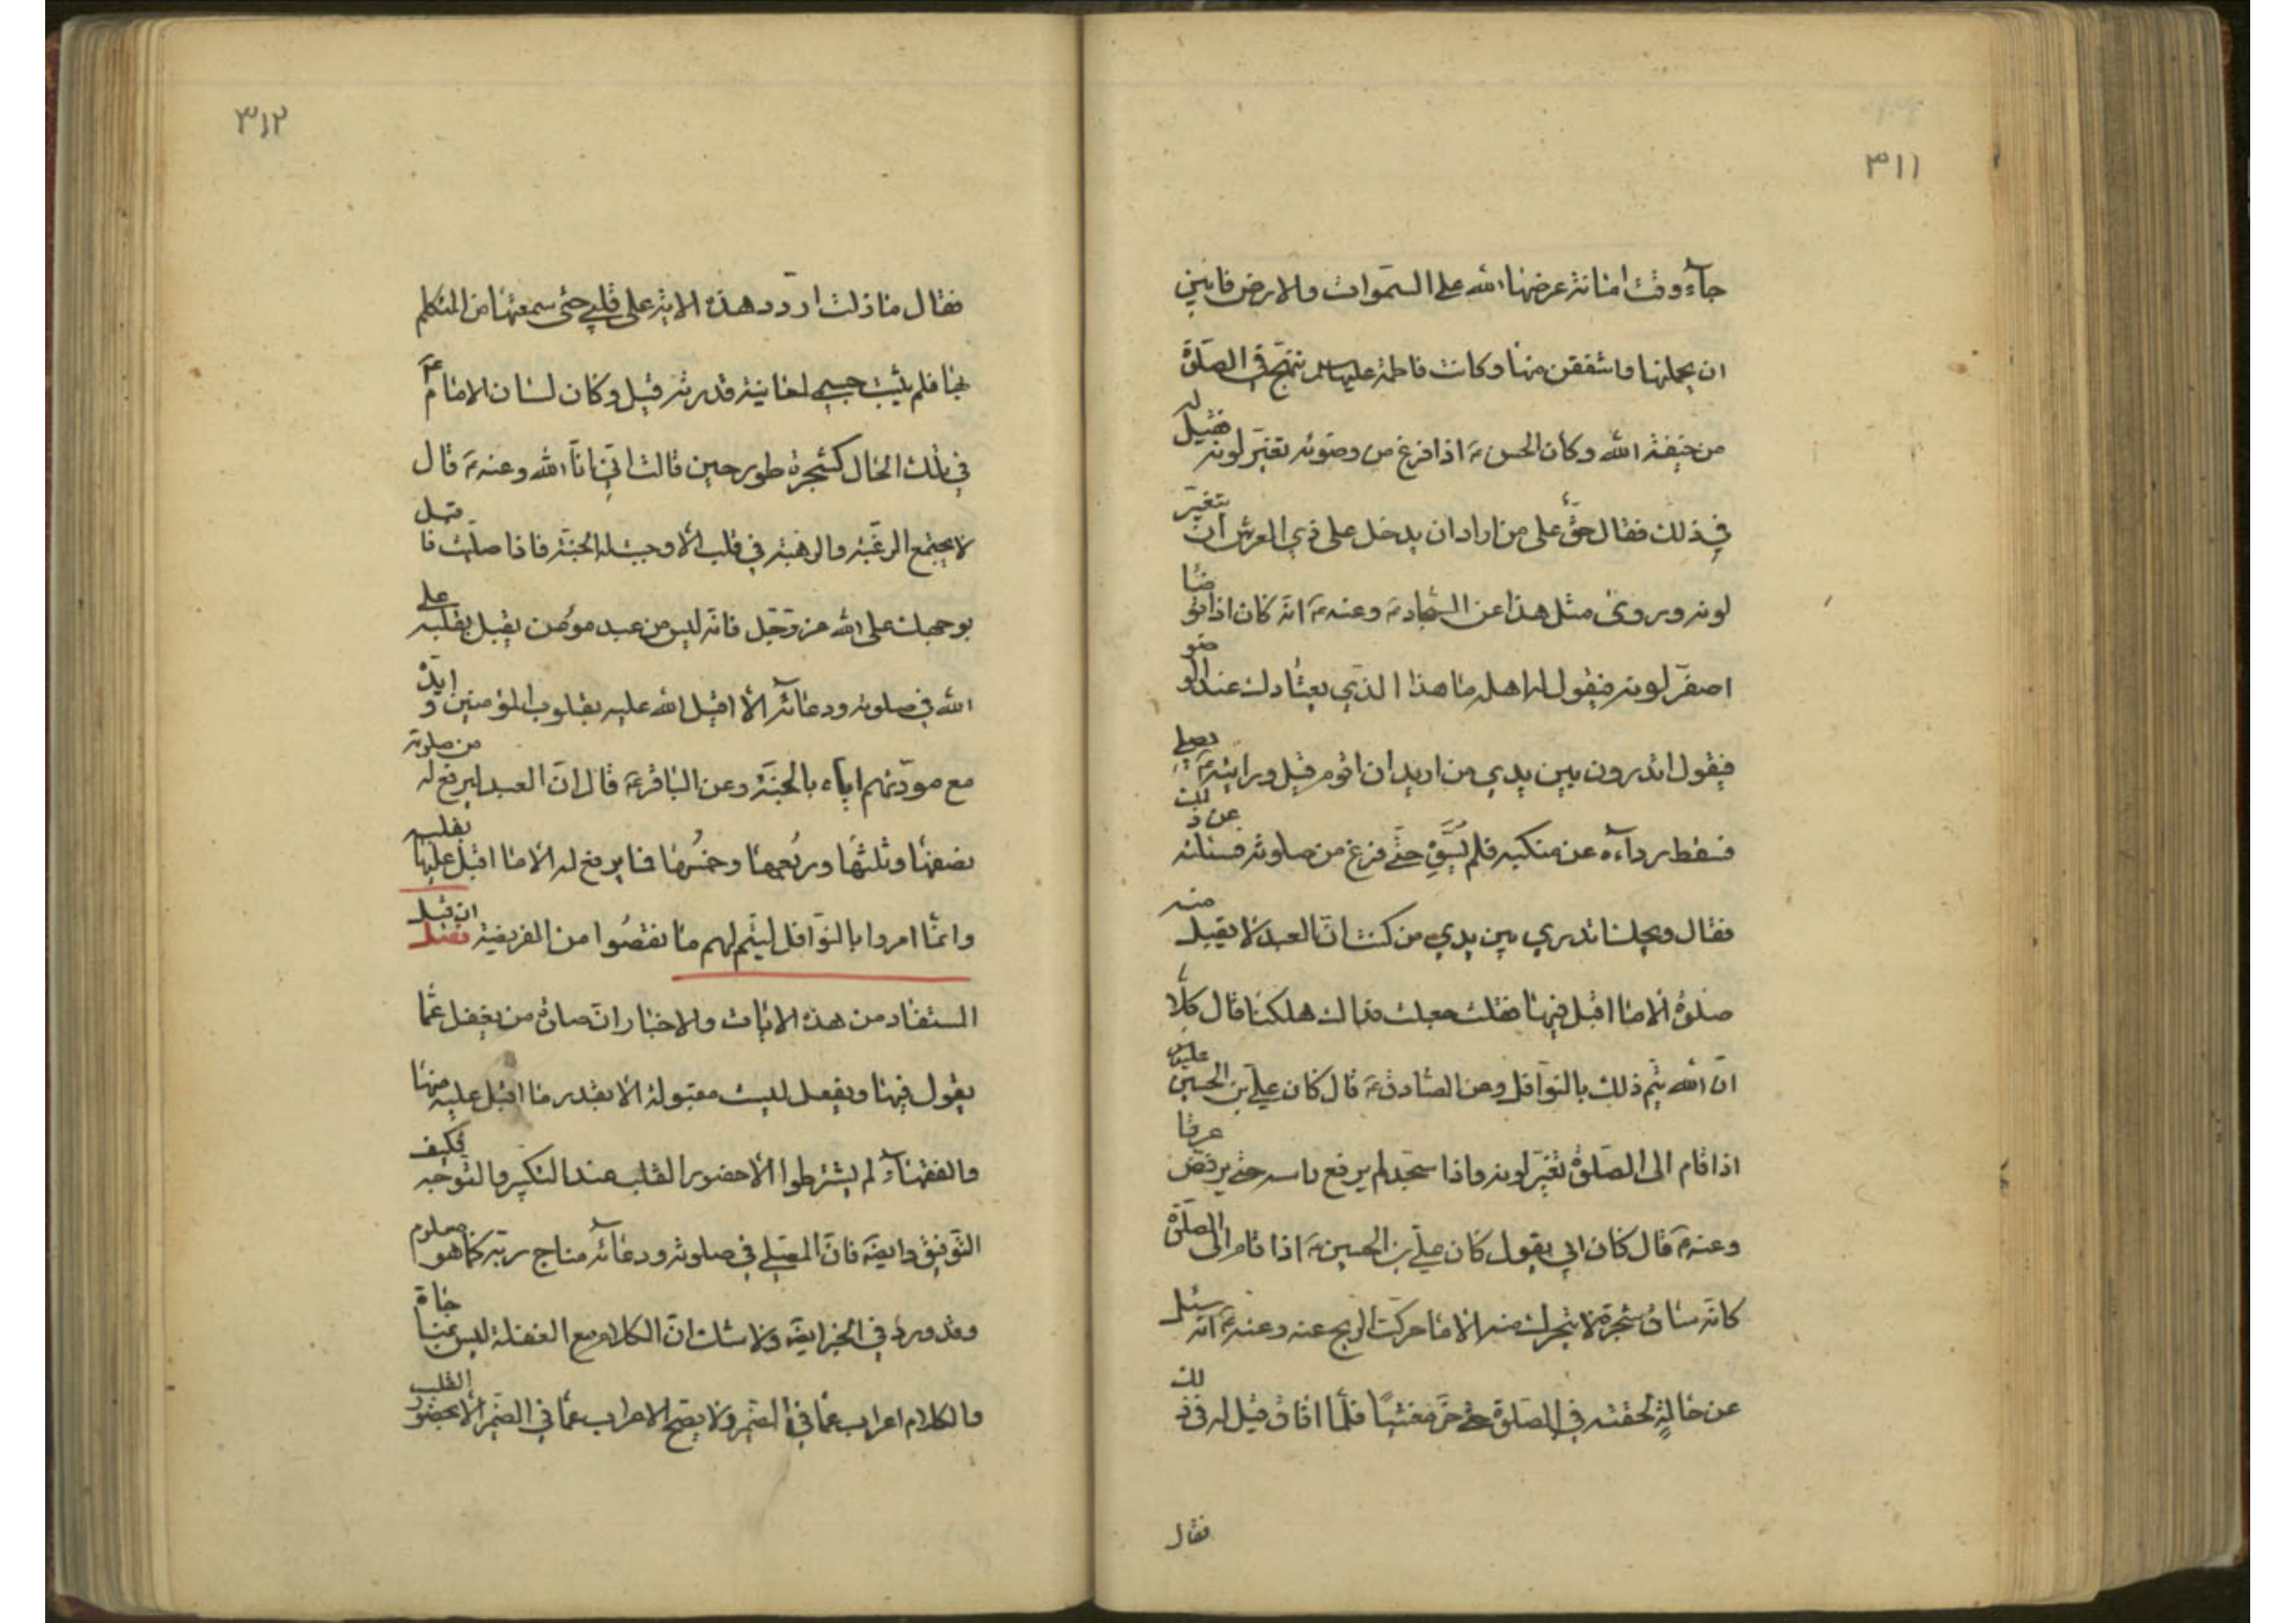 ٣١١
جآء وقت امانة عرضها الله على السموات والارض فابين
ان يحملنها واشفقن منها وكانت فاطمة عليها سلم تنهج في الصلوة
من خيفة الله وكان الحسن ع اذا فرغ من وضوئه تغير لونه فقيل له
في ذلك فقال حق على من اراد ان يدخل على ذي العرش ان يتغير
لونه وروى مثل هذا عن السجاد ع وعنه ع انه كان اذا توضا
اصفر لونه فيقول له اهله ما هذا الذي يعتادك عند الوضو
فيقول اتدرون بين يدي من اريد ان اقوم قيل ورايته ع يصلي
فسقط رداءه عن منكبيه فلم يسو حتى فرغ من صلوته فسئلته عن ذلك
فقال ويحك اتدري بين يدي من كنت ان العبد لا يقبل منه
صلوة الا ما اقبل فيها فقلت جعلت فداك هلكنا قال كلا
ان الله يتم ذلك بالنوافل وعن الصادق ع قال كان علي بن الحسين عليهما
اذا قام الى الصلوة تغير لونه واذا سجد لم يرفع راسه حتى يرفض عرقا
وعنه ع قال كان ابي يقول كان علي بن الحسين ع اذا قام الى الصلوة
كانه ساق شجرة لا يتحرك منه الا ما حركت الريح عنه وعنه ع انه سئل
عن حالة لحقته في الصلوة حتى خر مغشيا فلما افاق قيل له في ذلك
فقال
٣١٢
فقال ما زلت اردد هذه الاية على قلبي حتى سمعتها من المتكلم
بها فلم يثبت جسمي لمعاينة قدرته قيل وكان لسان الامام ع
في تلك الحال كشجرة طور حين قالت اني انا الله وعنه ع قال
لا يجتمع الرغبة والرهبة في قلب الا وجبت له الجنة فاذا صليت فاقبل
بوجهك على الله عز وجل فانه ليس من عبد مؤمن يقبل بقلبه على
الله في صلوته ودعائه الا اقبل الله عليه بقلوب المؤمنين وايده
مع مودتهم اياه بالجنة وعن الباقر ع قال ان العبد ليرفع له من صلوته
نصفها وثلثها وربعها وخمسها فما يرفع له الا ما اقبل عليها بقلبه
وانما امروا بالنوافل ليتم لهم ما نقصوا من الفريضة
المستفاد من هذه الايات والاخبار ان صلوة من يغفل عما
يقول فيها ويفعل ليست مقبولة الا بقدر ما اقبل عليه منها
والفقهاء لم يشترطوا الا حضور القلب عند التكبير والتوجه فكيف
التوفيق وايضا فان المصلي في صلوته ودعائه مناج ربه كما هو معلوم
وقد ورد في الخبر ايضا ولا شك ان الكلام مع الغفلة ليس بمناجاة
والكلام اعراب عما في الضمير ولا يصح الاعراب عما في الضمير الا بحضور القلب